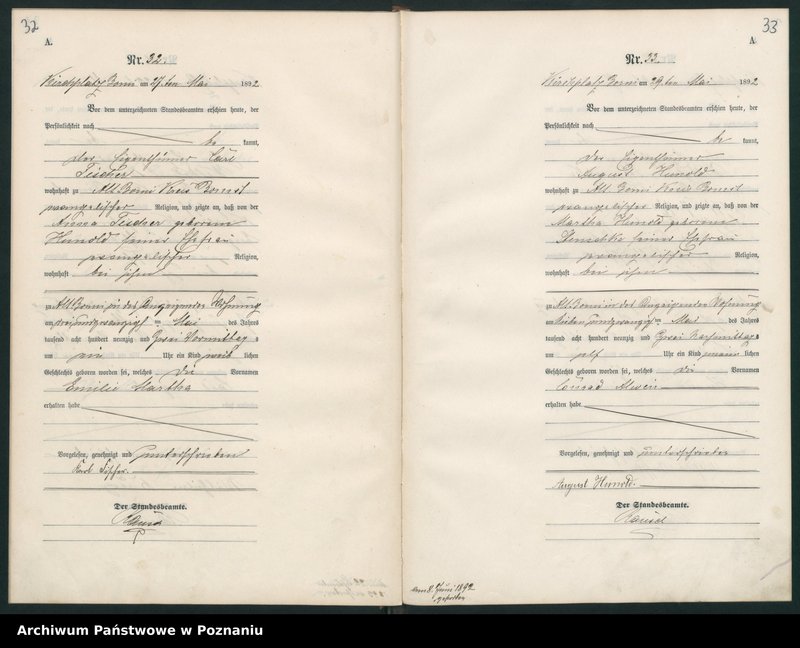 32
A.
Nr. 32.
Kirchplatz Bomi am 27.ten Mai 1892
Vor dem unterzeichneten Standesbeamten erschien heute, der
Persönlichkeit nach
be kannt,
der Eigenthümer Carl
Fischer
wohnhaft zu Alt Bomi Kreis Bomst
evangelischer Religion, und zeigte an, daß von der
Anna Fischer geborenen
Hunold seiner Ehefrau
evangelischer Religion,
wohnhaft bei ihm
zu Alt Bomi in des Anzeigenden Wohnung
am des Jahres
tausend acht hundert neunzig und zwei Vormittags
um ein Uhr ein Kind weib lichen
Geschlechts geboren worden sei, welches die Vornamen
Emilie Martha
erhalten habe
Vorgelesen, genehmigt und unterschrieben
Karl Fischer.
Der Standesbeamte.
33
A
Nr. 33.
Kirchplatz Bomi am 29.ten Mai 1892
Vor dem unterzeichneten Standesbeamten erschien heute, der
Persönlichkeit nach
be kannt,
der Eigenthümer
August Hunold
wohnhaft zu Alt Bomi Kreis Bomst
evangelischer Religion, und zeigte an, daß von der
Martha Hunold geborenen
seiner Ehefrau
evangelischer Religion,
wohnhaft bei ihm
zu Alt Bomi in des Anzeigenden Wohnung
am siebenundzwanzig ten Mai des Jahres
tausend acht hundert neunzig und zwei Nachmittags
um elf Uhr ein Kind männ lichen
Geschlechts geboren worden sei, welches die Vornamen
Conrad Alwin
erhalten habe
Vorgelesen, genehmigt und unterschrieben
August Hunold.
Der Standesbeamte.
am 8. Juni 1892
Archiwum Państwowe w Poznaniu